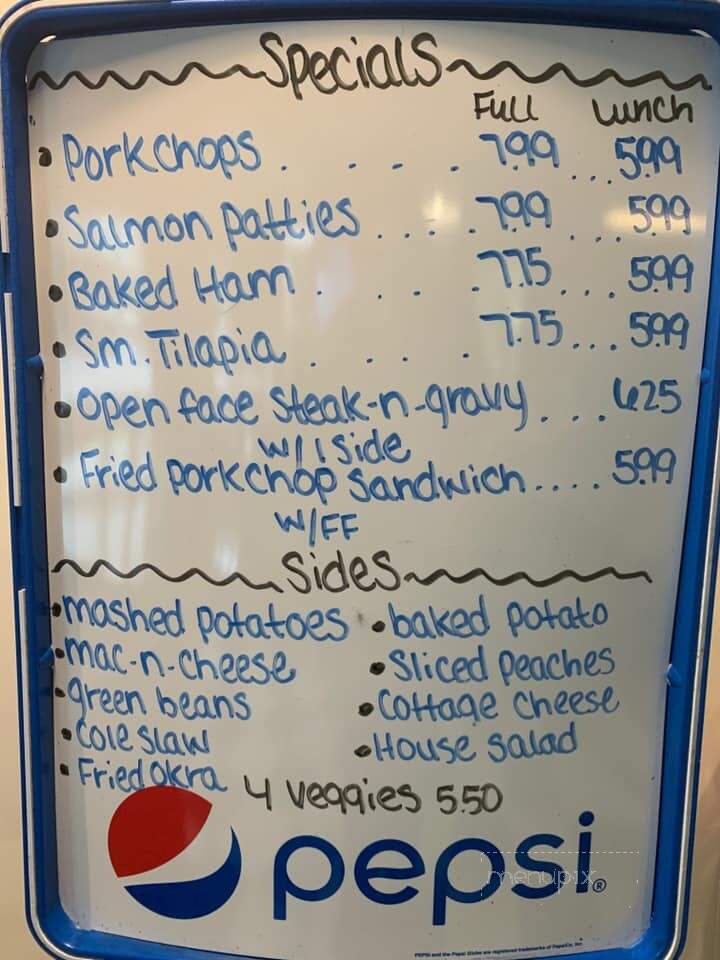 Specials
Full Lunch
• Pork chops . . - - . 7.99 ... 5.99
• Salmon Patties . . . . . 7.99 . . . 5.99
• Baked Ham . . . . 7.75 . . . 5.99
• Sm. Tilapia . . . . 7.75 ... 5.99
• Open face Steak-n-gravy . . . . 6.25
w/ 1 side
• Fried Porkchop Sandwich .... 5.99
w/FF
Sides
• mashed potatoes • baked potato
• mac-n-cheese • Sliced Peaches
• green beans • Cottage Cheese
• Cole slaw • House Salad
• Fried Okra
4 veggies 5.50
pepsi®
menupix
PEPSI and the Pepsi Globe are registered trademarks of PepsiCo, Inc.